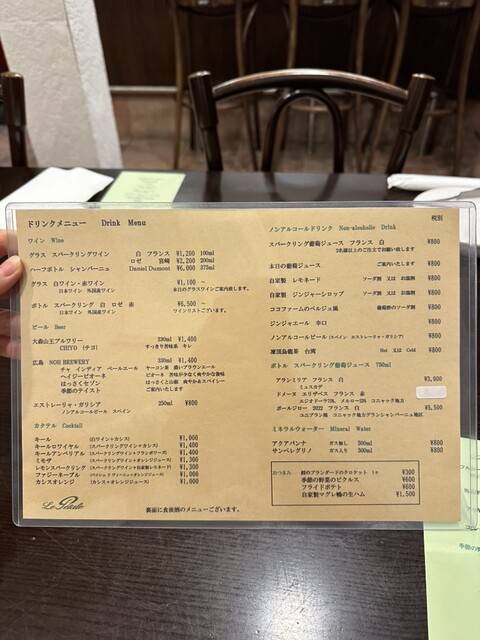 ドリンクメニュー Drink Menu
ワイン Wine
グラス スパークリングワイン 白 フランス ¥1,200 100ml
ロゼ 宮崎 ¥2,200 200ml
ハーフボトル シャンパーニュ Daniel Dumont ¥6,000 375ml
グラス 白ワイン・赤ワイン ¥1,100 ~
日本ワイン 外国産ワイン 本日のグラスワインご案内致します。
ボトル スパークリング 白 ロゼ 赤 ¥6,500 ~
日本ワイン 外国産ワイン ワインリストございます。
ビール Beer
大森山王ブルワリー 330ml ¥1,400
CHIYO (チヨ) すっきり苦味系 キレ
広島 NOH BREWERY 330ml ¥1,400
チャ インディア ペールエール
ヘイジーピオーネ
はっさくセゾン
季節のテイスト
エストレーリャ・ガリシア 250ml ¥800
ノンアルコールビール スペイン
カクテル Cocktail
キール (白ワイン+カシス) ¥1,000
キールロワイヤル (スパークリングワイン+カシス) ¥1,400
キールアンペリアル (スパークリングワイン+フランボワーズ) ¥1,400
ミモザ (スパークリングワイン+オレンジジュース) ¥1,300
レモンスパークリング (スパークリングワイン+自家製レモネード) ¥1,300
ファジーネーブル (ピーチ+オレンジジュース) ¥1,000
カシスオレンジ (カシス+オレンジジュース) ¥1,000
Le Pétale
裏面に食後酒のメニューございます。
税別
ノンアルコールドリンク Non-alcoholic Drink
スパークリング葡萄ジュース フランス 白 ¥800
2名様以上のご注文でお願い致します
本日の葡萄ジュース ¥800
ご案内致します
自家製 レモネード ソーダ割 又は お湯割 ¥800
自家製 ジンジャーシロップ ソーダ割 又は お湯割 ¥800
ココファームのベルジュ風 葡萄酢のソーダ割 ¥800
ジンジャエール 辛口 ¥800
ノンアルコールビール (スペイン エストレーリャ・ガリシア) ¥800
凍頂烏龍茶 台湾 Hot 又は Cold ¥800
ボトル スパークリング葡萄ジュース 750ml
アランミリア フランス 白 ¥3,000
ミュスカデ
ドメーヌ エリザベス フランス 赤
ポールジロー 2022 フランス 白 ¥5,500
ユニブラン種 コニャック地方グランシャンパーニュ地区
ミネラルウォーター Mineral Water
アクアパンナ ガス無し 500ml ¥800
サンペレグリノ ガス入り 500ml ¥800
おつまみ 鱈のブランダードのクロケット 1ヶ ¥300
季節の野菜のピクルス ¥600
フライドポテト ¥600
自家製マグレ鴨の生ハム ¥1,500